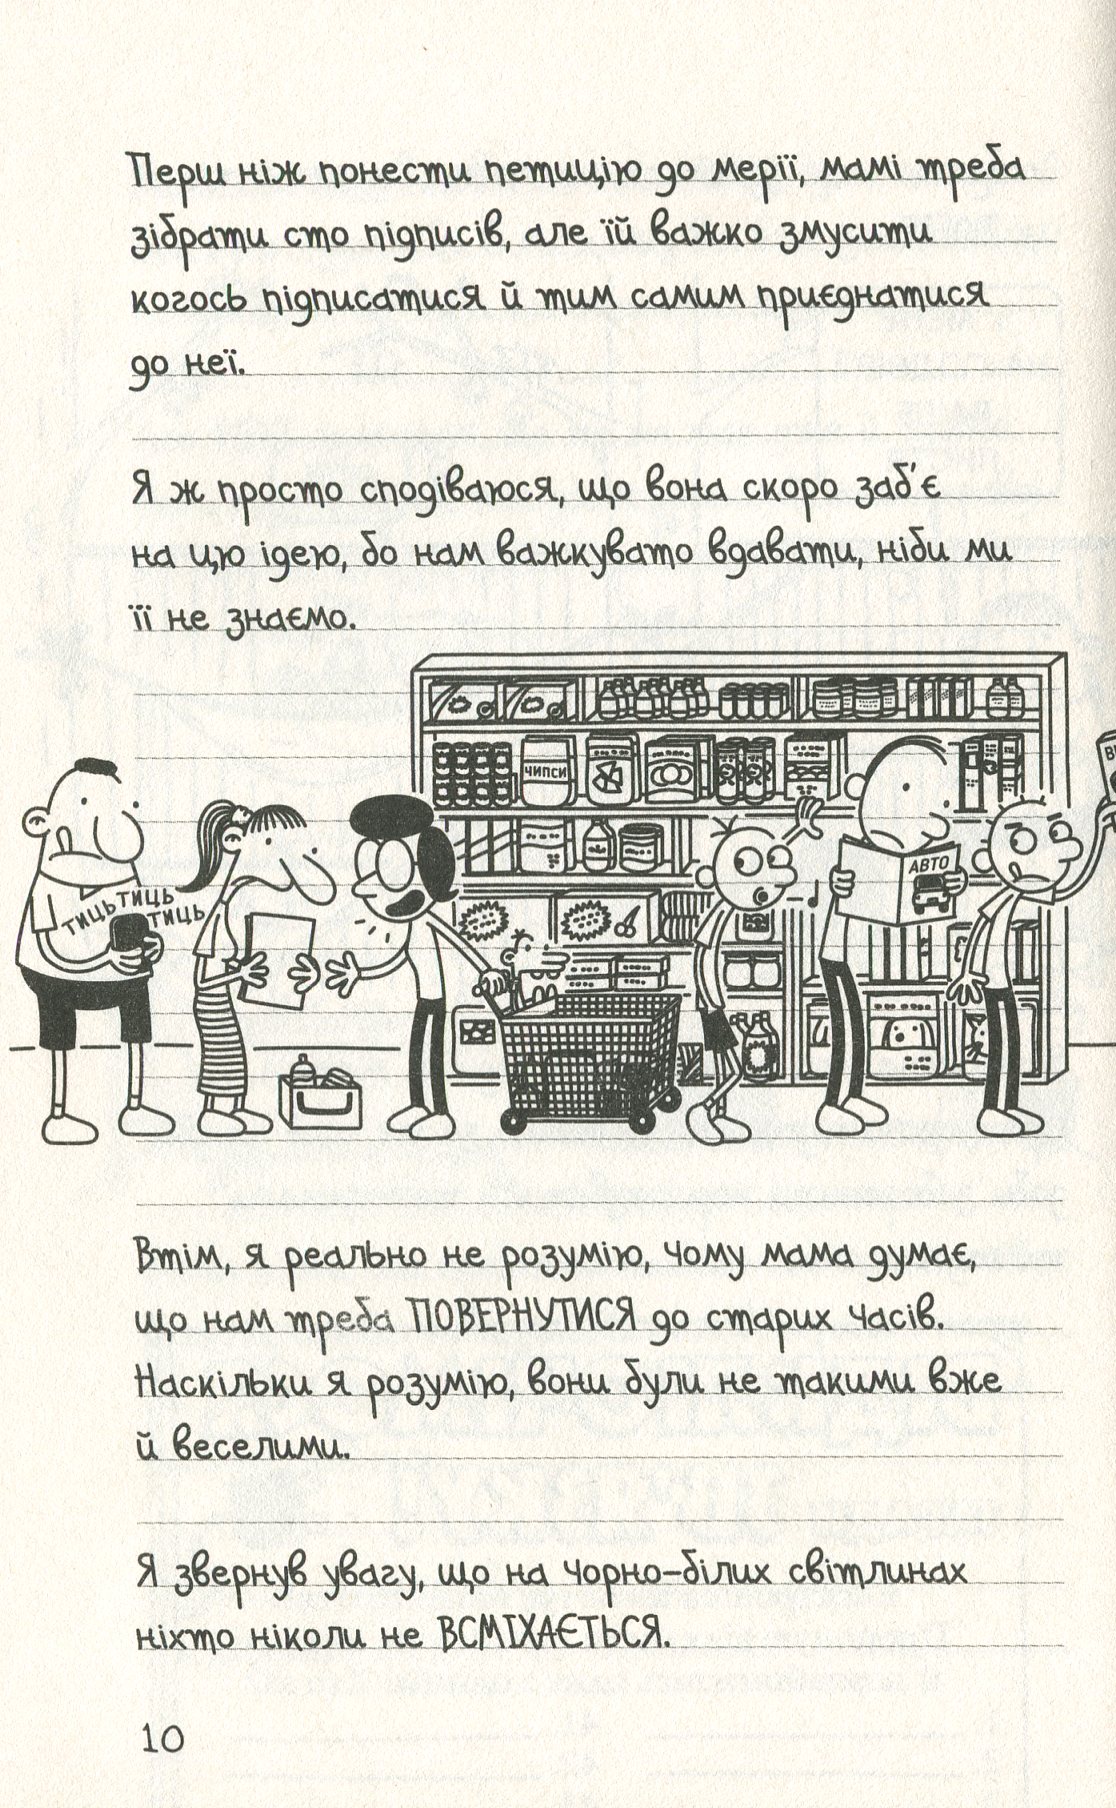 Перш ніж понести петицію до мерії, мамі треба
зібрати сто підписів, але їй важко змусити
когось підписатися й тим самим приєднатися
до неї.
Я ж просто сподіваюся, що вона скоро заб'є
на цю ідею, бо нам важкувато вдавати, ніби ми
її не знаємо.
ЧИПСИ
АВТО
ТИЦЬ
ТИЦЬ
ТИЦЬ
Втім, я реально не розумію, чому мама думає,
що нам треба ПОВЕРНУТИСЯ до старих часів.
Наскільки я розумію, вони були не такими вже
й веселими.
Я звернув увагу, що на чорно-білих світлинах
ніхто ніколи не ВСМІХАЄТЬСЯ.
10